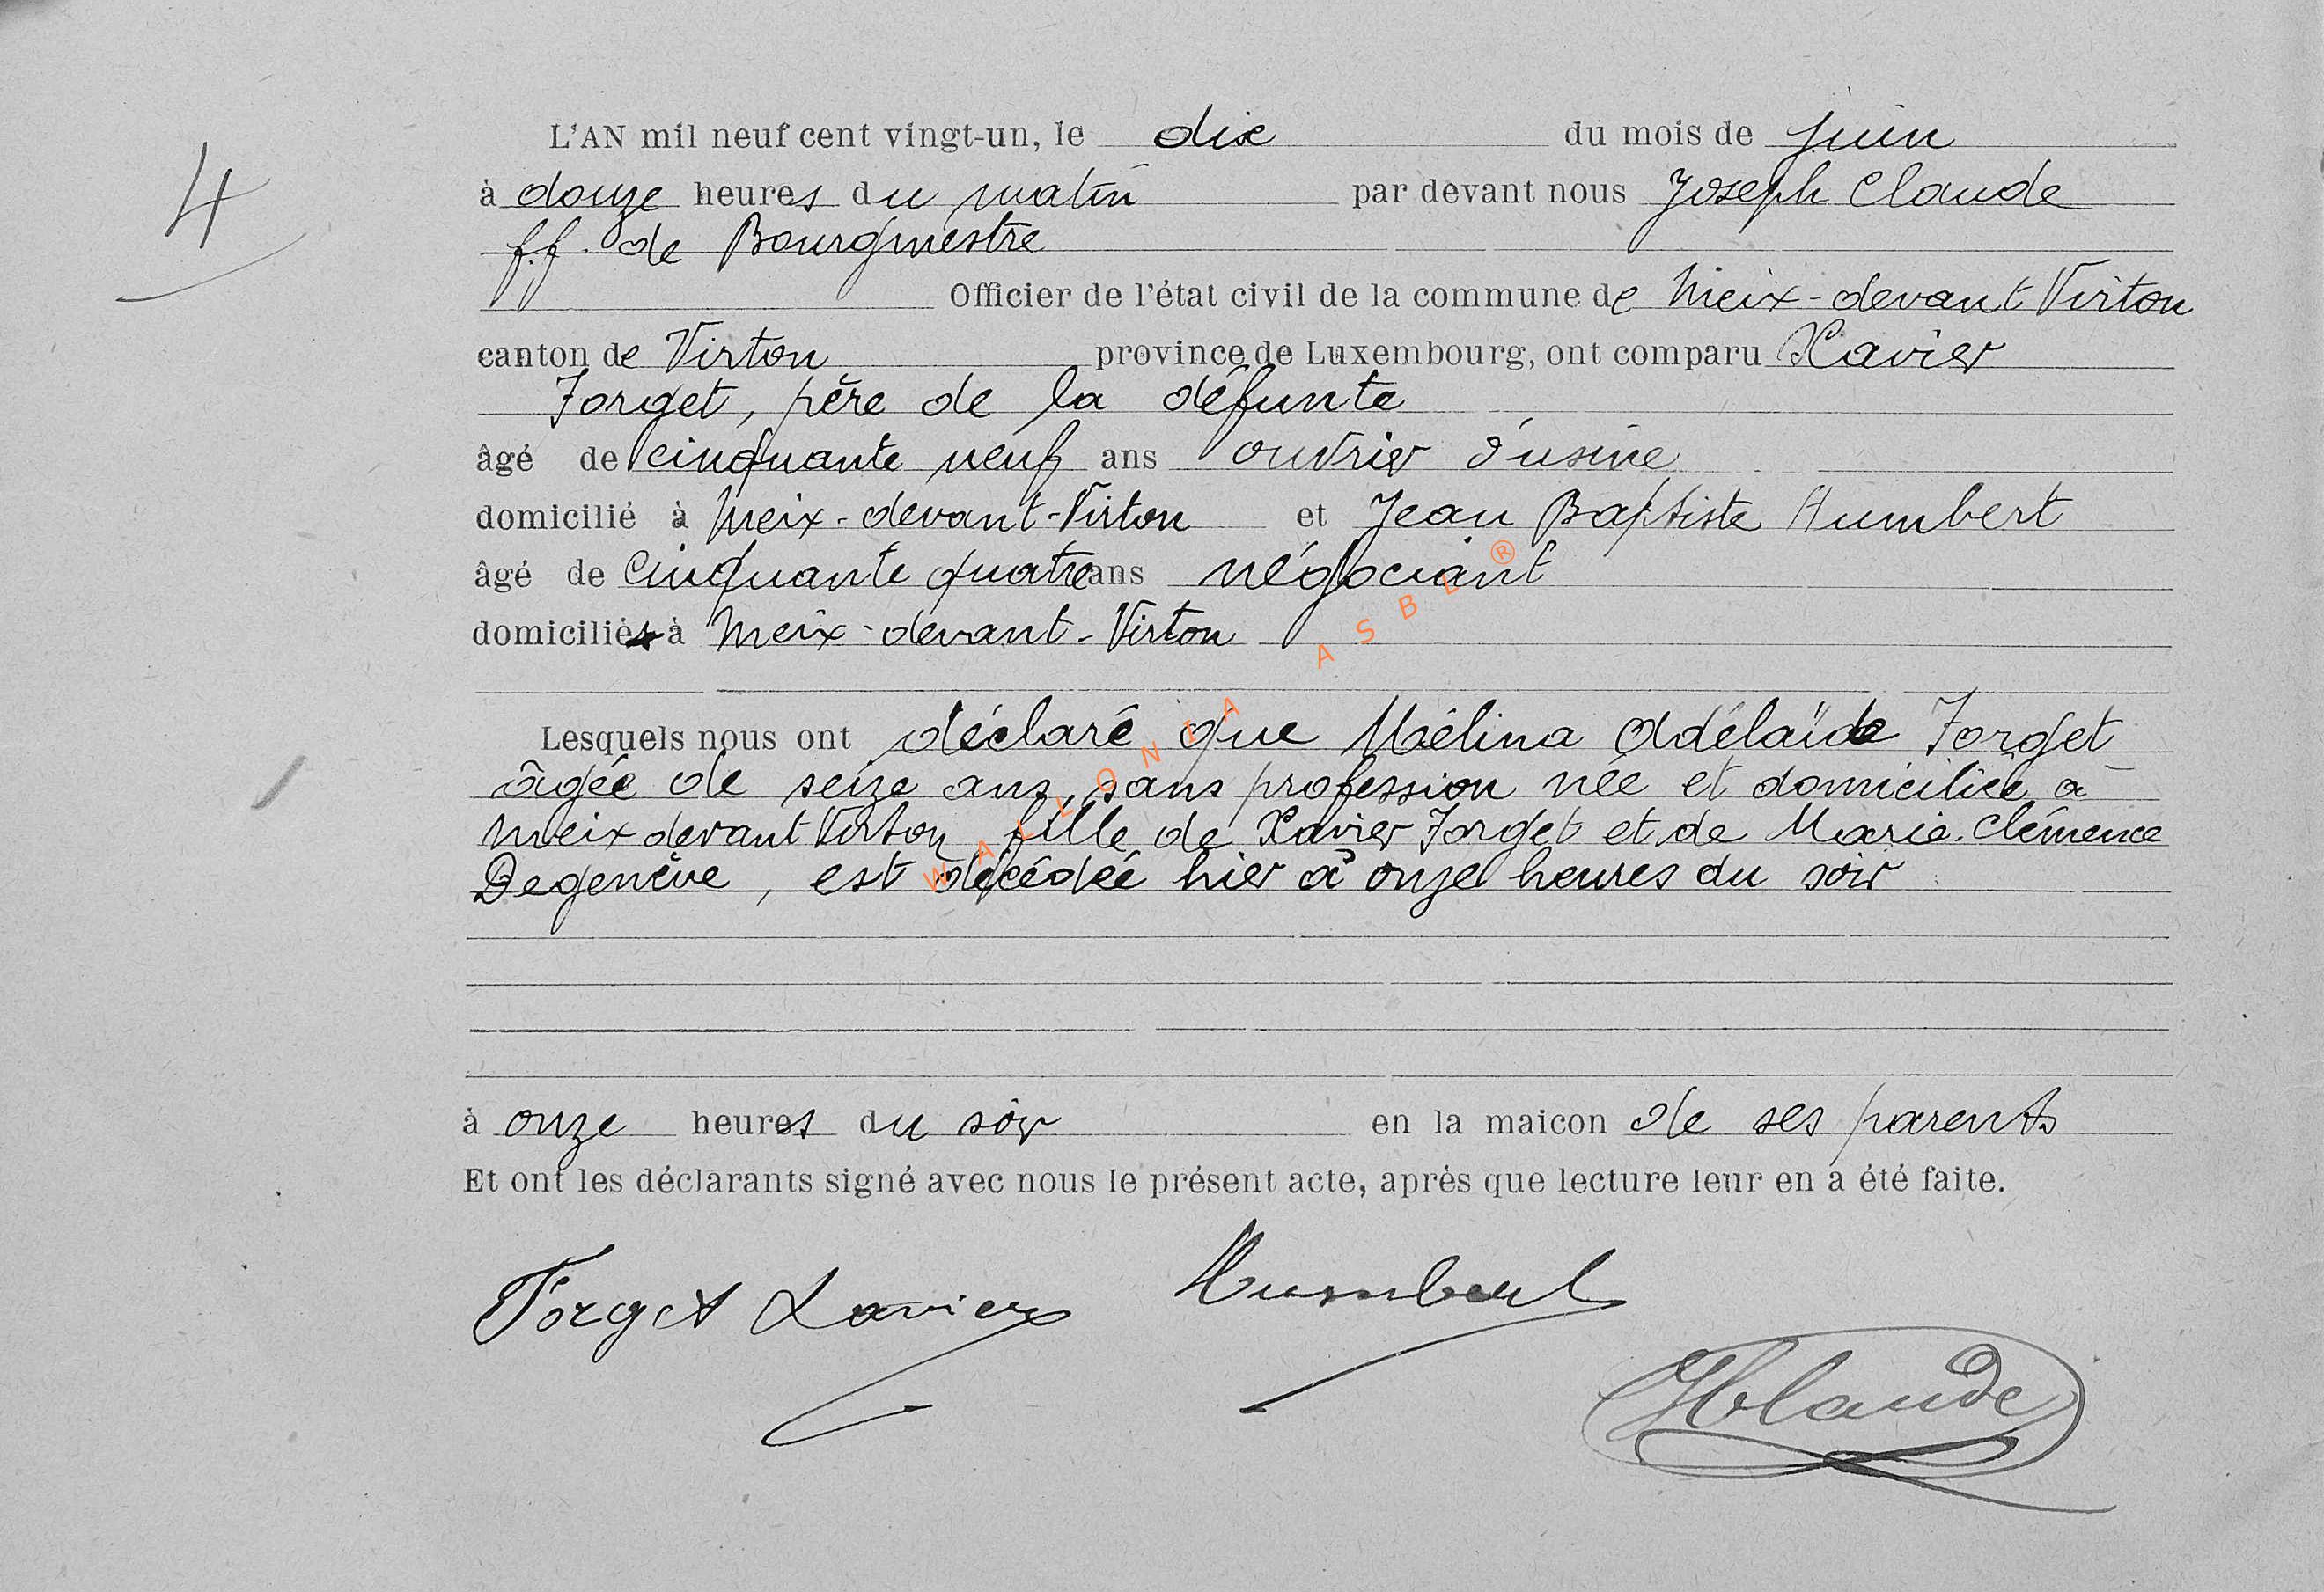 4
L'AN mil neuf cent vingt-un, le dix du mois de juin
à douze heures du matin par devant nous Joseph Claude
ff. de Bourgmestre
Officier de l'état civil de la commune de Meix-devant Virton
canton de Virton province de Luxembourg, ont comparu Xavier
Forget, père de la défunte
âgé de cinquante neuf ans ouvrier d'usine
domicilié à Meix-devant-Virton et Jean Baptiste Humbert
âgé de cinquante quatre ans négociant
domiciliés à Meix-devant-Virton
Lesquels nous ont déclaré que Mélina Adélaïde Forget
âgée de seize ans, sans profession née et domiciliée à
Meix devant Virton fille de Xavier Forget et de Marie. Clémence
Degenève, est décédée hier à onze heures du soir
à onze heures du soir en la maicon de ses parents
Et ont les déclarants signé avec nous le présent acte, après que lecture leur en a été faite.
Forget Xavier Humbert
JClaude
WALLONIA ASBL ®